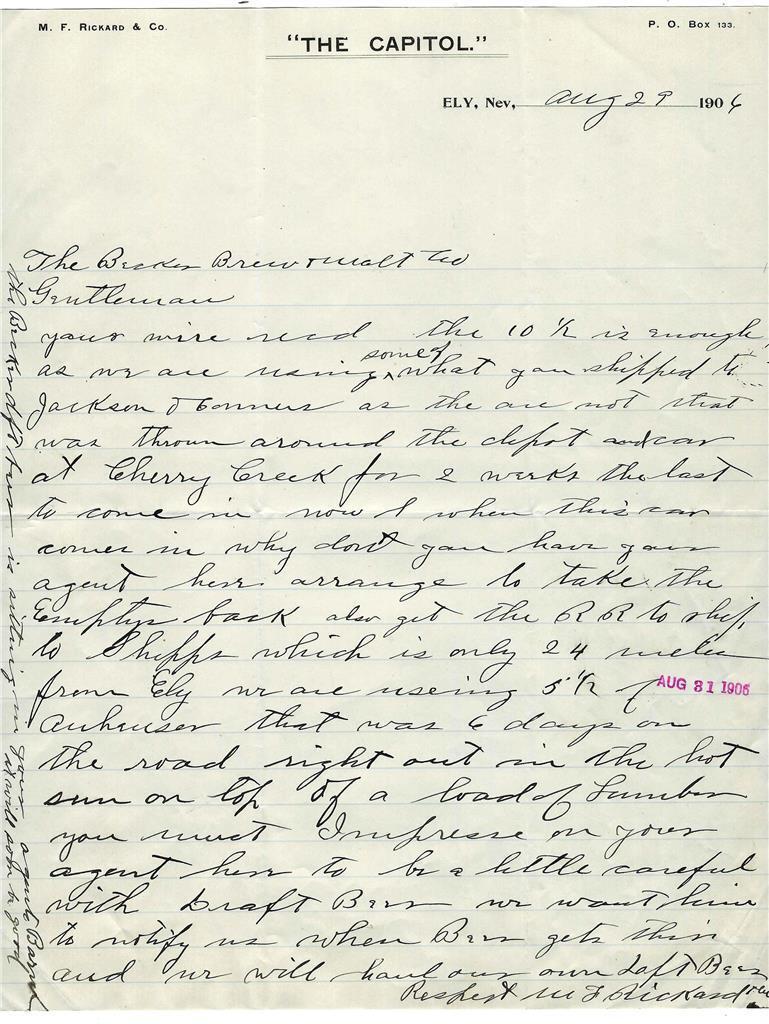 M. F. Rickard & Co.
P. O. Box 133.
"THE CAPITOL."
ELY, Nev, Aug 29 1906
The Becker Brew & Malt Co
Gentleman
your wire recd the 10 1/2 is enough
as we are using some of what you shipped to
Jackson O Conners as the are not that
was thrown around the depot and car
at Cherry Creek for 2 weeks the last
to come in now I when this car
comes in why dont you have your
agent here arrange to take the
Emptys back also get the R R to ship
to Shipps which is only 24 miles
from Ely we are useing 5 1/2 of
AUG 31 1906
Anheuser that was 6 days on
the road right out in the hot
sun on top of a load of Lumber
you must Impresse on your
agent here to be a little careful
with Draft Beer we want him
to notify us when Beer gets thir
and we will haul our own Daft Beer
Respect M F Rickard & Co
the Becker dft beer is sitting in your agents
it will soon be good